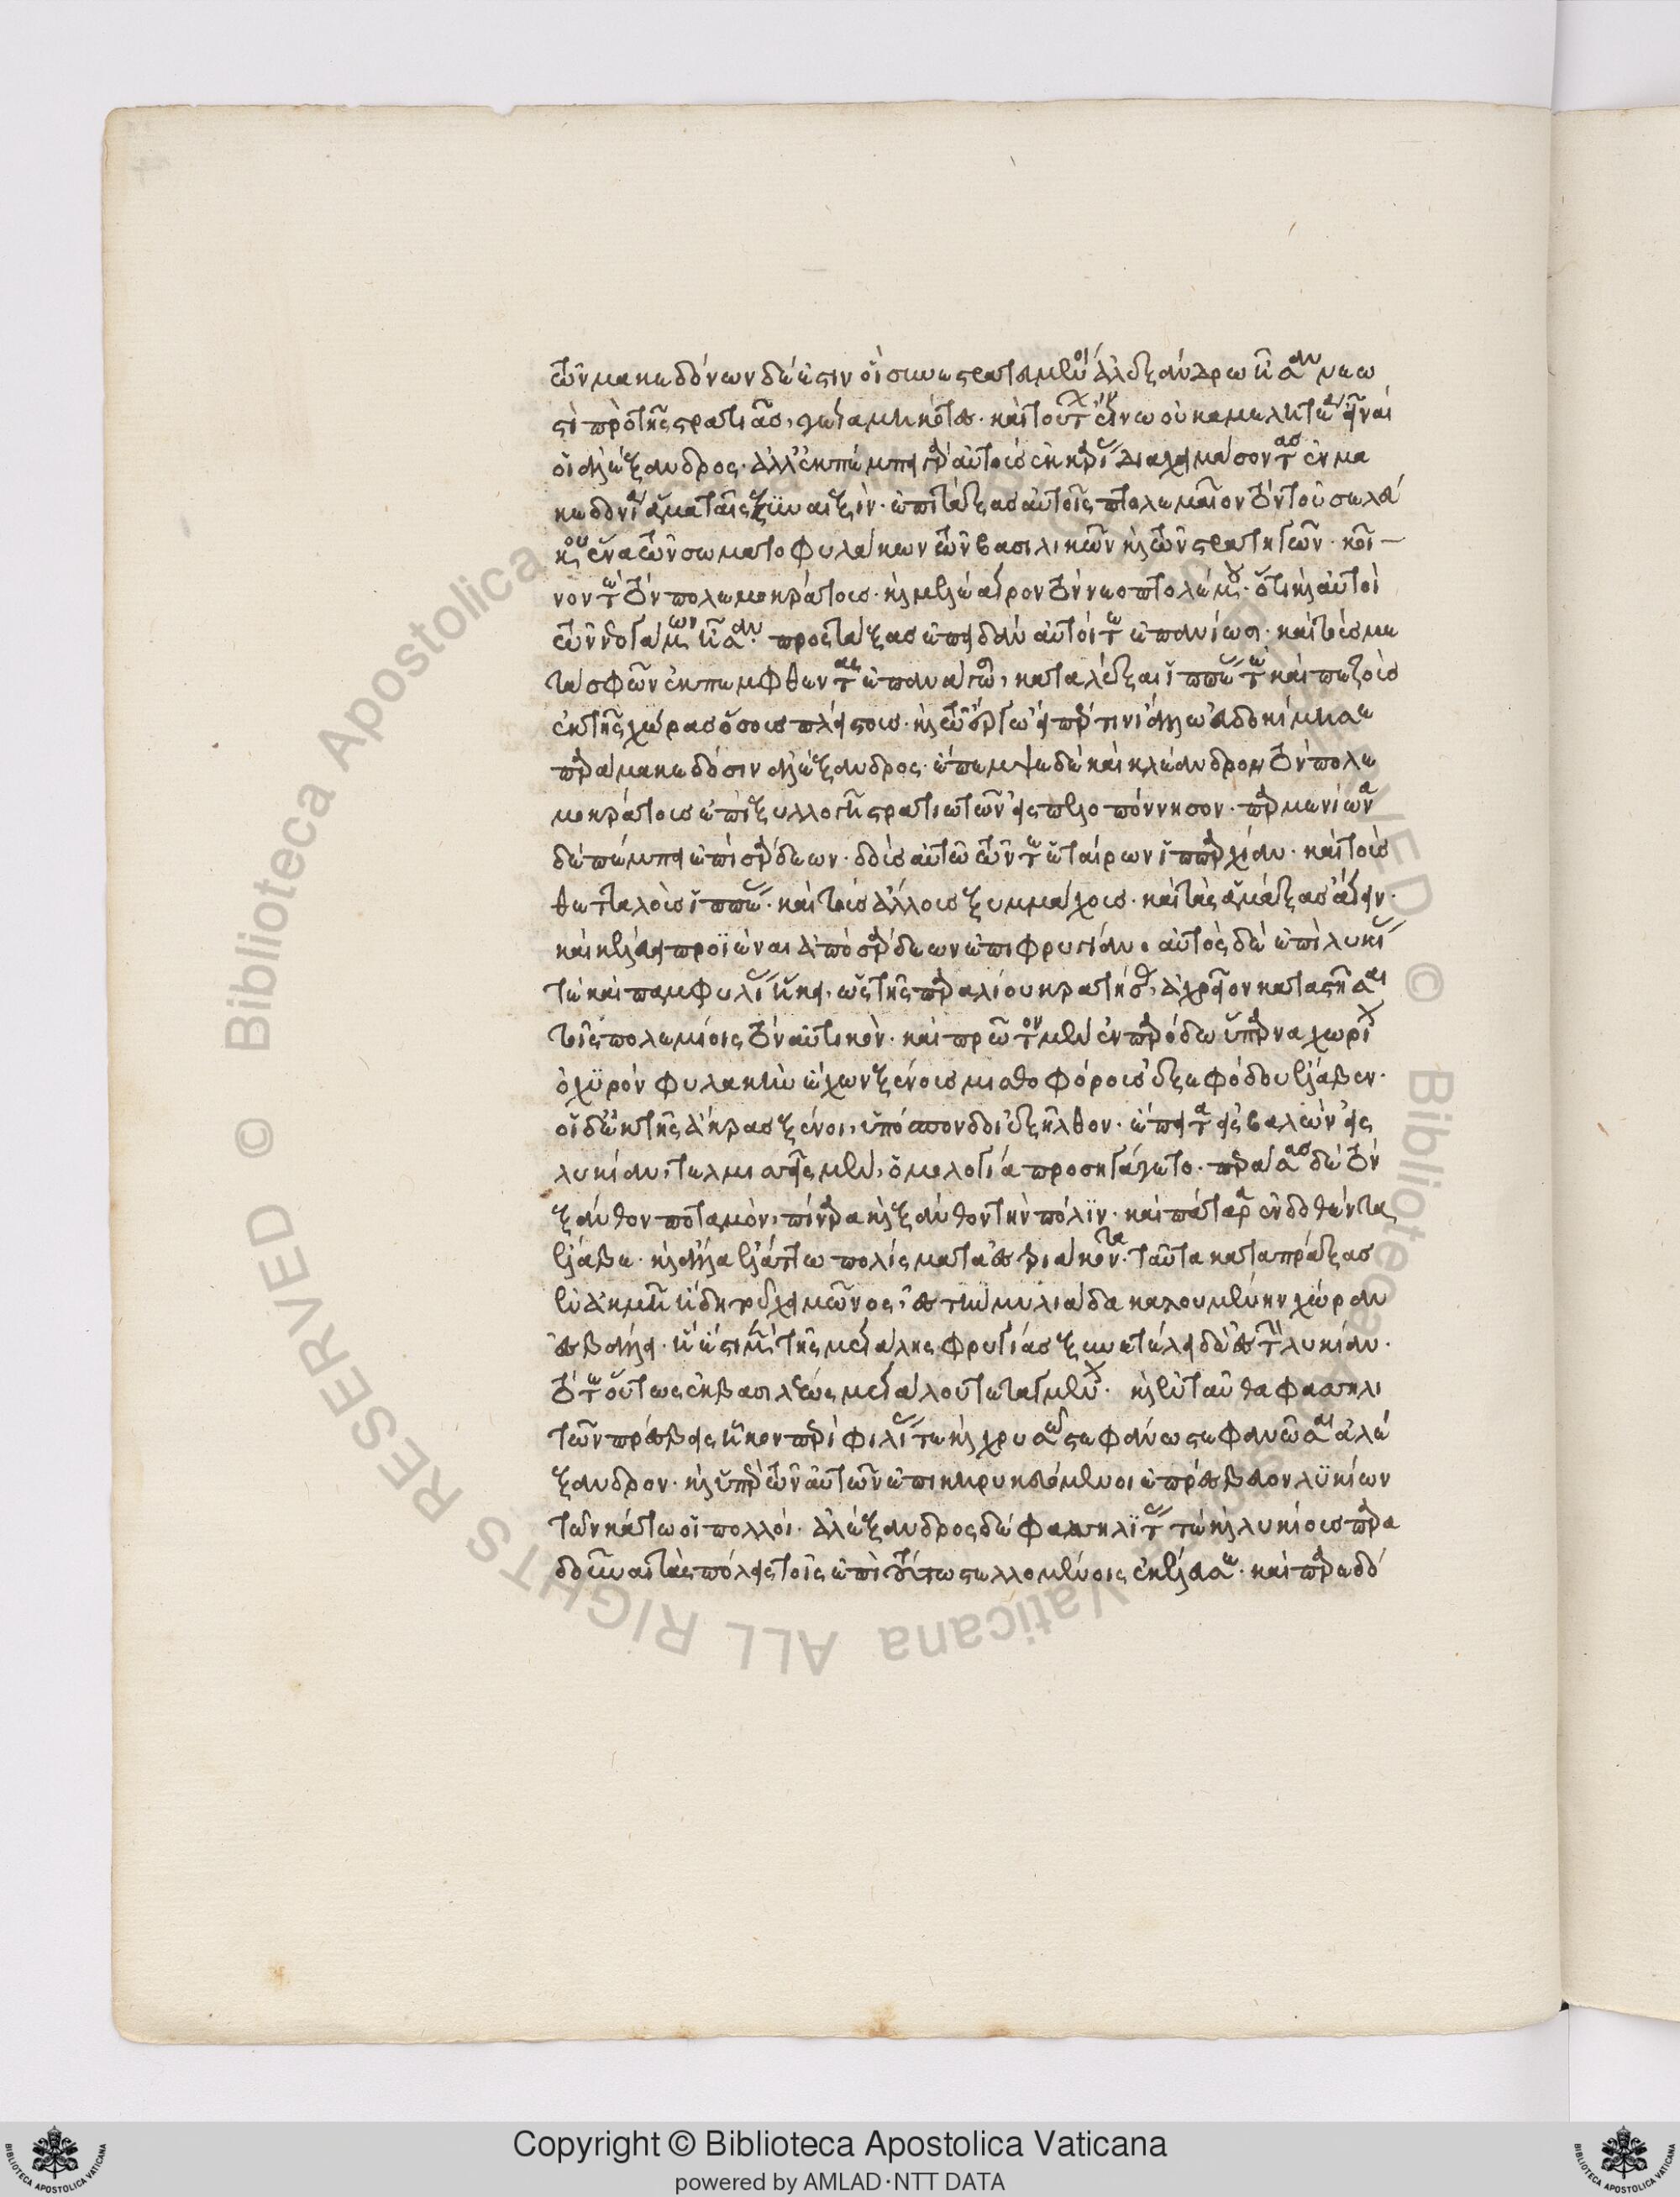 τῶν μακεδόνων δέ ἐστιν οἳ συνεστρατευμένοι ἀλεξάνδρω ἦσαν νεω
στὶ πρὸ τῆς στρατιᾶς γεγαμηκότες· καὶ τούτων ἔγνω οὐκ ἀμελητέα εἶναί
οἱ ἀλέξανδρος· ἀλλ' ἐκπέμπει γὰρ αὐτοὺς ἐκ καρίας διαχειμάσοντας ἐν μα
κεδονία ἅμα ταῖς γυναιξίν· ἐπιτάξας αὐτοῖς πτολεμαῖον τὸν τοῦ σελεύ
κου ἕνα τῶν σωματοφυλάκων τῶν βασιλικῶν καὶ τῶν στρατηγῶν· κοῖ
νόν τε τὸν πολεμοκράτους· καὶ μελέαγρον τὸν νεοπτολέμου· ὅτι καὶ αὐτοὶ
τῶν νεογάμων ἦσαν· προστάξας ἐπειδὰν αὐτοί τε ἐπανίωσι· καὶ τοὺς με
τὰ σφῶν ἐκπεμφθέντας ἐπαναγάγωσι, καταλέξαι ἱππέας τε καὶ πεζοὺς
ἐκ τῆς χώρας ὅσους πλείστους· καὶ τῶ ἔργω εἴπερ τινὶ ἄλλω εὐδοκίμησε
παρὰ μακεδόσιν ἀλέξανδρος· ἔπεμψε δὲ καὶ κλέανδρον τὸν πολε
μοκράτους ἐπὶ ξυλλογῆ στρατιωτῶν εἰς πελοπόννησον· παρμενίωνα
δὲ πέμπει ἐπὶ σάρδεων· δοὺς αὐτῶ τῶν τε ἑταίρων ἱππαρχίαν· καὶ τοὺς
θετταλοὺς ἱππέας· καὶ τοὺς ἄλλους ξυμμάχους· καὶ τὰς ἁμάξας ἄγειν·
καὶ κελεύει προϊέναι ἀπὸ σάρδεων ἐπὶ φρυγίαν· αὐτὸς δὲ ἐπὶ λυκίας
τε καὶ παμφυλίας ἤει, ὡς τῆς παραλίου κρατήσας, ἀχρεῖον καταστῆσαι
τοῖς πολεμίοις τὸ ναυτικόν· καὶ πρῶτον μὲν ἐν παρόδω ὕπαρνα χωρίον
ὀχυρὸν φυλακὴν ἔχον ξένους μισθοφόρους ἐξ ἐφόδου ἔλαβεν·
οἱ δ' ἐκ τῆς ἄκρας ξένοι, ὑπόσπονδοι ἐξῆλθον· ἔπειτα εἰσβαλὼν εἰς
λυκίαν, τελμισσεῖς μὲν, ὁμολογία προσηγάγετο· περάσας δὲ τὸν
ξάνθον ποταμὸν, πίναρα καὶ ξάνθον τὴν πόλιν· καὶ πάταρα ἐνδοθέντα
ἔλαβε· καὶ ἄλλα ἐλάττω πολίσματα ἐς τριάκοντα· ταῦτα καταπράξας
ἐν ἀκμῆ ἤδη τοῦ χειμῶνος, ἐς τὴν μιλιάδα καλουμένην χώραν
ἐσβάλλει· ἣ ἔστι μὲν τῆς μεγάλης φρυγίας ξυνετέλει δὲ ἐς τὴν λυκίαν·
τότε οὕτως ἐκ βασιλέως μεγάλου τεταγμένον· καὶ ἐνταῦθα φασηλι
τῶν πρέσβεις ἧκον περὶ φιλίας τε καὶ χρυσῶ στεφάνω στεφανῶσαι ἀλέ
ξανδρον· καὶ ὑπὲρ τῶν αὐτῶν ἐπικηρυκευόμενοι ἐπρέσβευον λυκίων
τῶν κάτω οἱ πολλοί· ἀλέξανδρος δὲ φασηλίτας τε καὶ λυκίους παρα
δοῦναι τὰς πόλεις τοῖς ἐπὶ τούτω στελλομένοις ἐκέλευσε· καὶ παρεδό